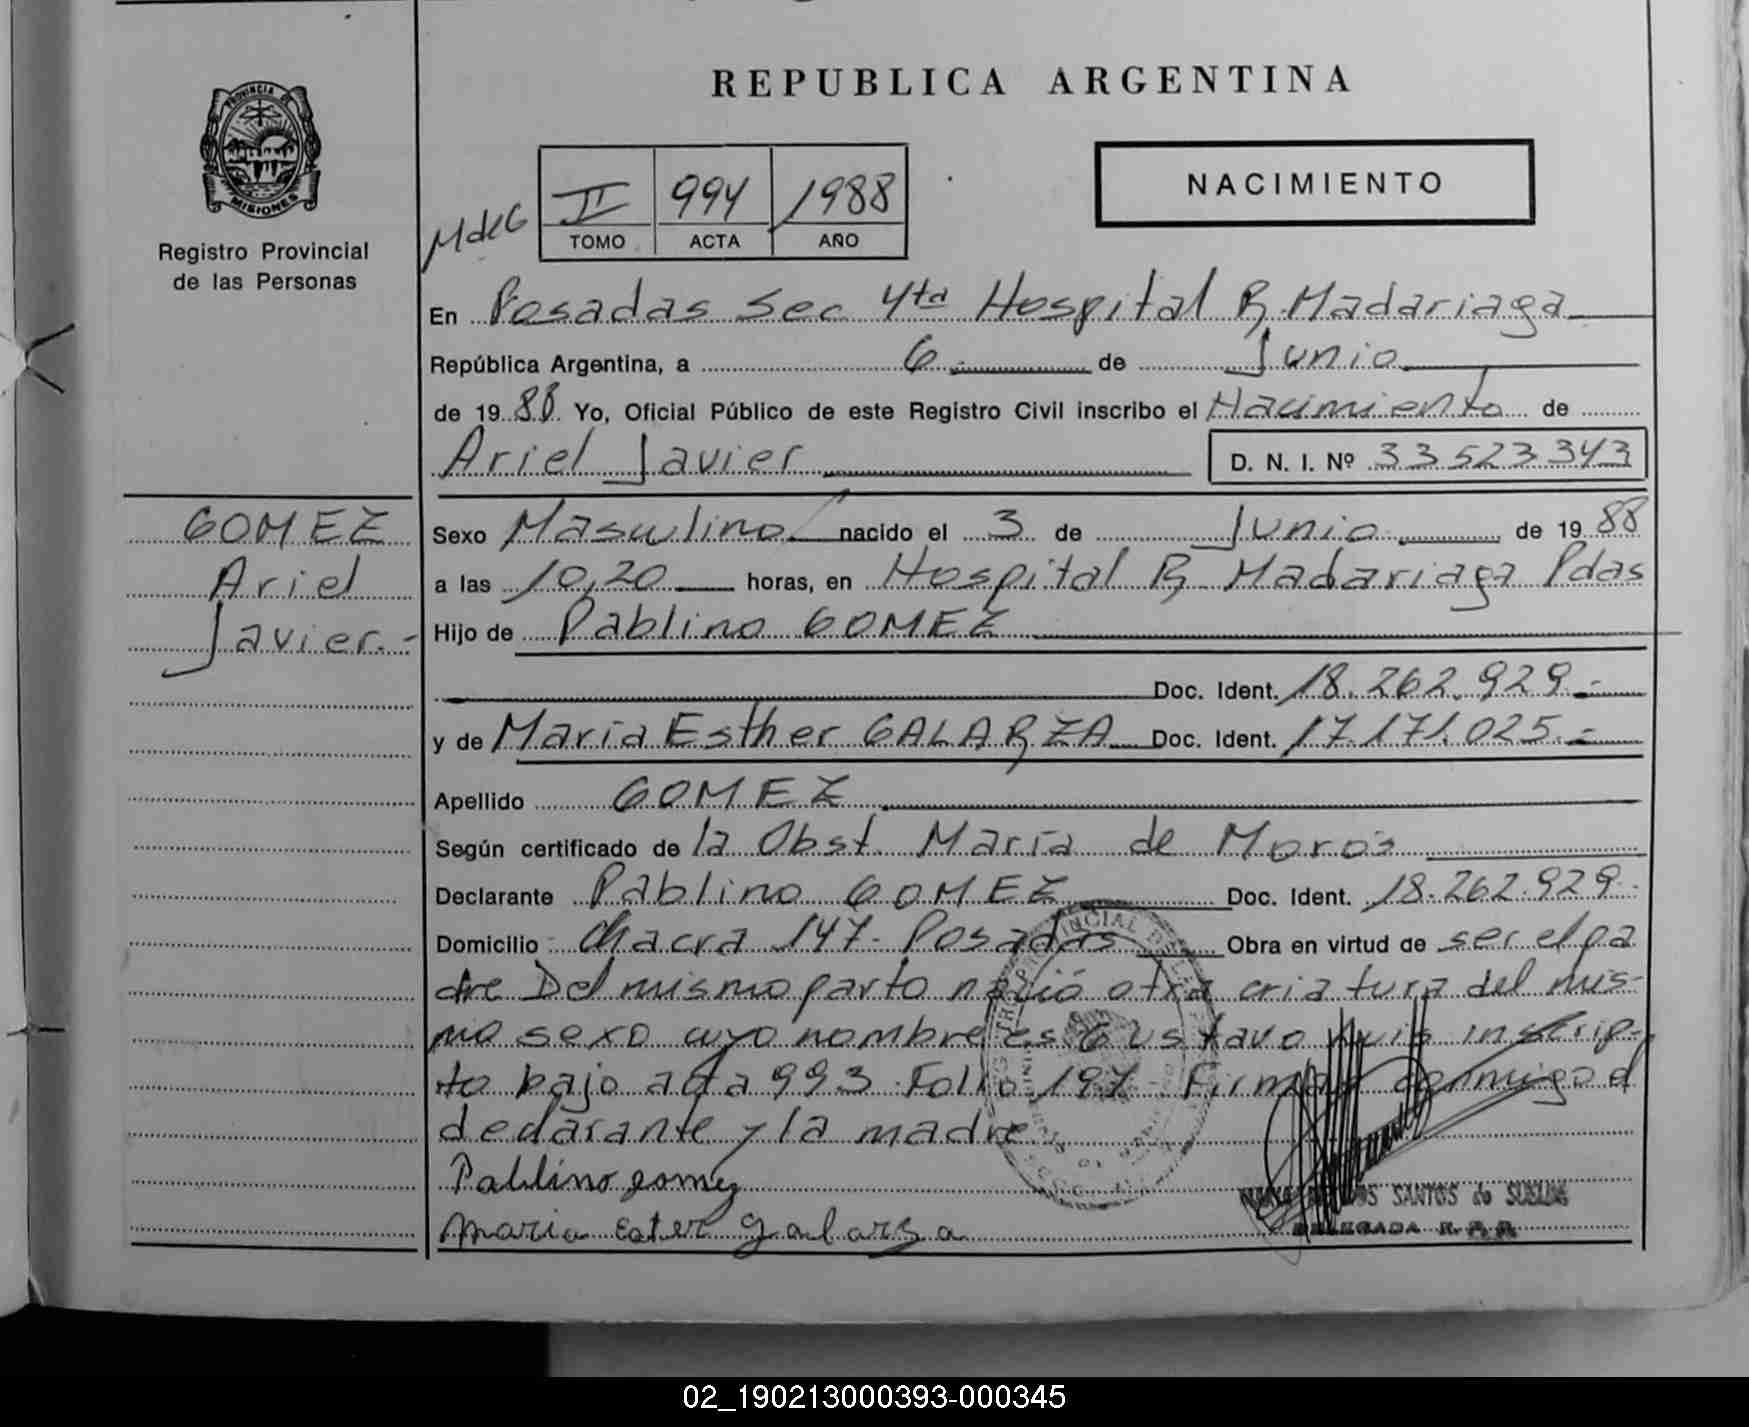 REPUBLICA ARGENTINA
PROVINCIA DE
MISIONES
Registro Provincial
de las Personas
MdeG
II 994 1988
TOMO ACTA AÑO
NACIMIENTO
En Posadas Sec 4ta Hospital R. Madariaga
República Argentina, a 6 de Junio
de 1988 Yo, Oficial Público de este Registro Civil inscribo el Nacimiento de
Ariel Javier D. N. I. Nº 33523343
GOMEZ
Ariel
Javier.-
Sexo Masculino nacido el 3 de Junio de 1988
a las 10,20 horas, en Hospital R. Madariaga Pdas
Hijo de Pablino GOMEZ
Doc. Ident. 18.262.929.-
y de Maria Esther GALARZA Doc. Ident. 17.171.025.-
Apellido GOMEZ
Según certificado de la Obst. María de Moros
Declarante Pablino GOMEZ Doc. Ident. 18.262.929.
Domicilio Chacra 147- Posadas Obra en virtud de ser el pa
dre Del mismo parto nació otra criatura del mis-
mo sexo cuyo nombre es Gustavo Luis inscrip-
to bajo acta 993 Folio 197 Firman conmigo el
declarante y la madre
Pablino gomez
maria ester galarza
DOS SANTOS de
DELEGADA R. P. P.
02_190213000393-000345